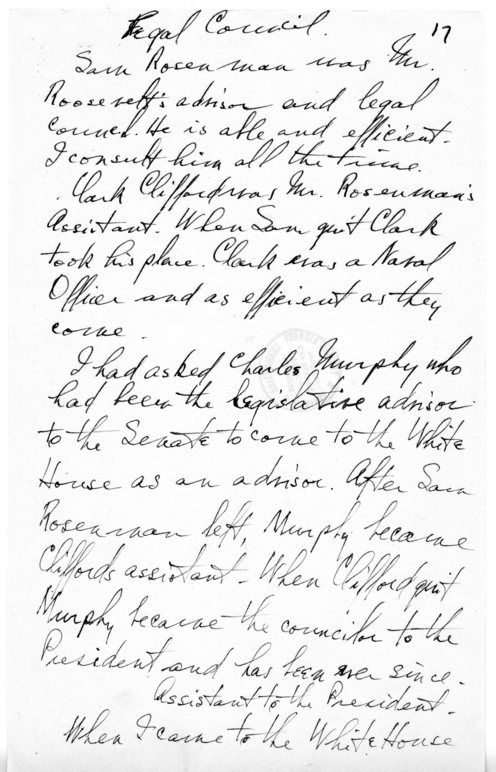 Legal Council.
17
Sam Rosenman was Mr.
Roosevelt's advisor and legal
council. He is able and efficient.
I consult him all the time.
Clark Clifford was Mr. Rosenman's
Assistant. When Sam quit Clark
took his place. Clark was a Naval
Officer and as efficient as they
come.
I had asked Charles Murphy who
had been the legislative advisor
to the Senate to come to the White
House as an advisor. After Sam
Rosenman left, Murphy became
Cliffords assistant - When Clifford quit
Murphy became the councilor to the
President and has been ever since.
Assistant to the President.
When I came to the White House